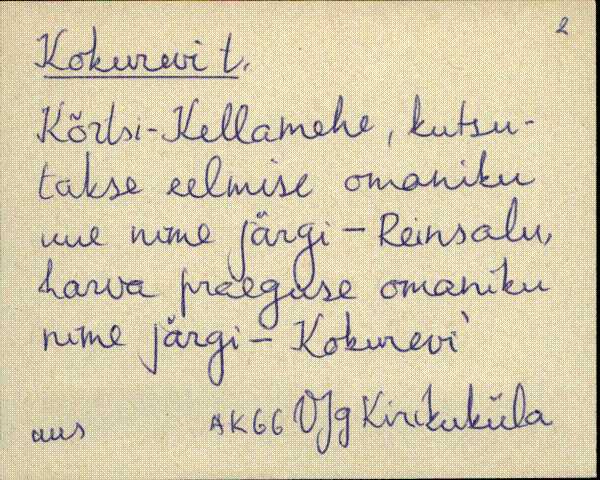 2
Kokurevi t.
Kõrtsi-Kellamehe, kutsu-
takse eelmise omaniku
uue nime järgi - Reinsalu,
harva praeguse omaniku
nime järgi - Kokurevi'
uus AK66 VJg Kirikuküla